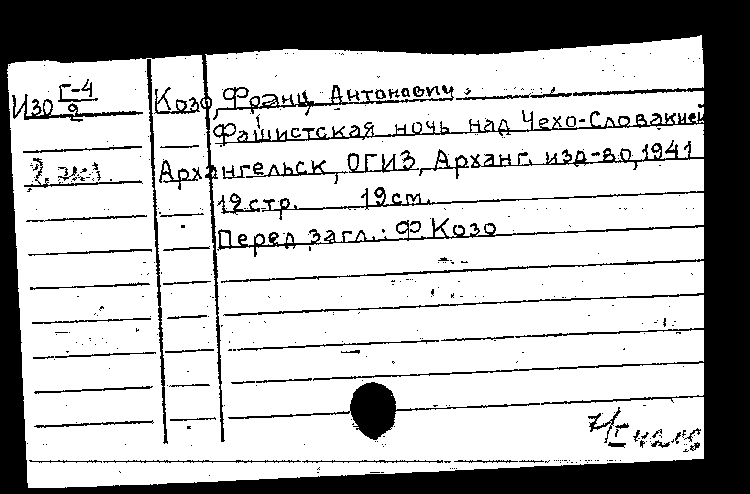 Изо Г-4/9 Козо, Франц Антонович.
Фашистская ночь над Чехо-Словакией
2 экз Архангельск, ОГИЗ, Арханг. изд-во, 1941
12 стр. 19 см.
Перед загл.: Ф. Козо